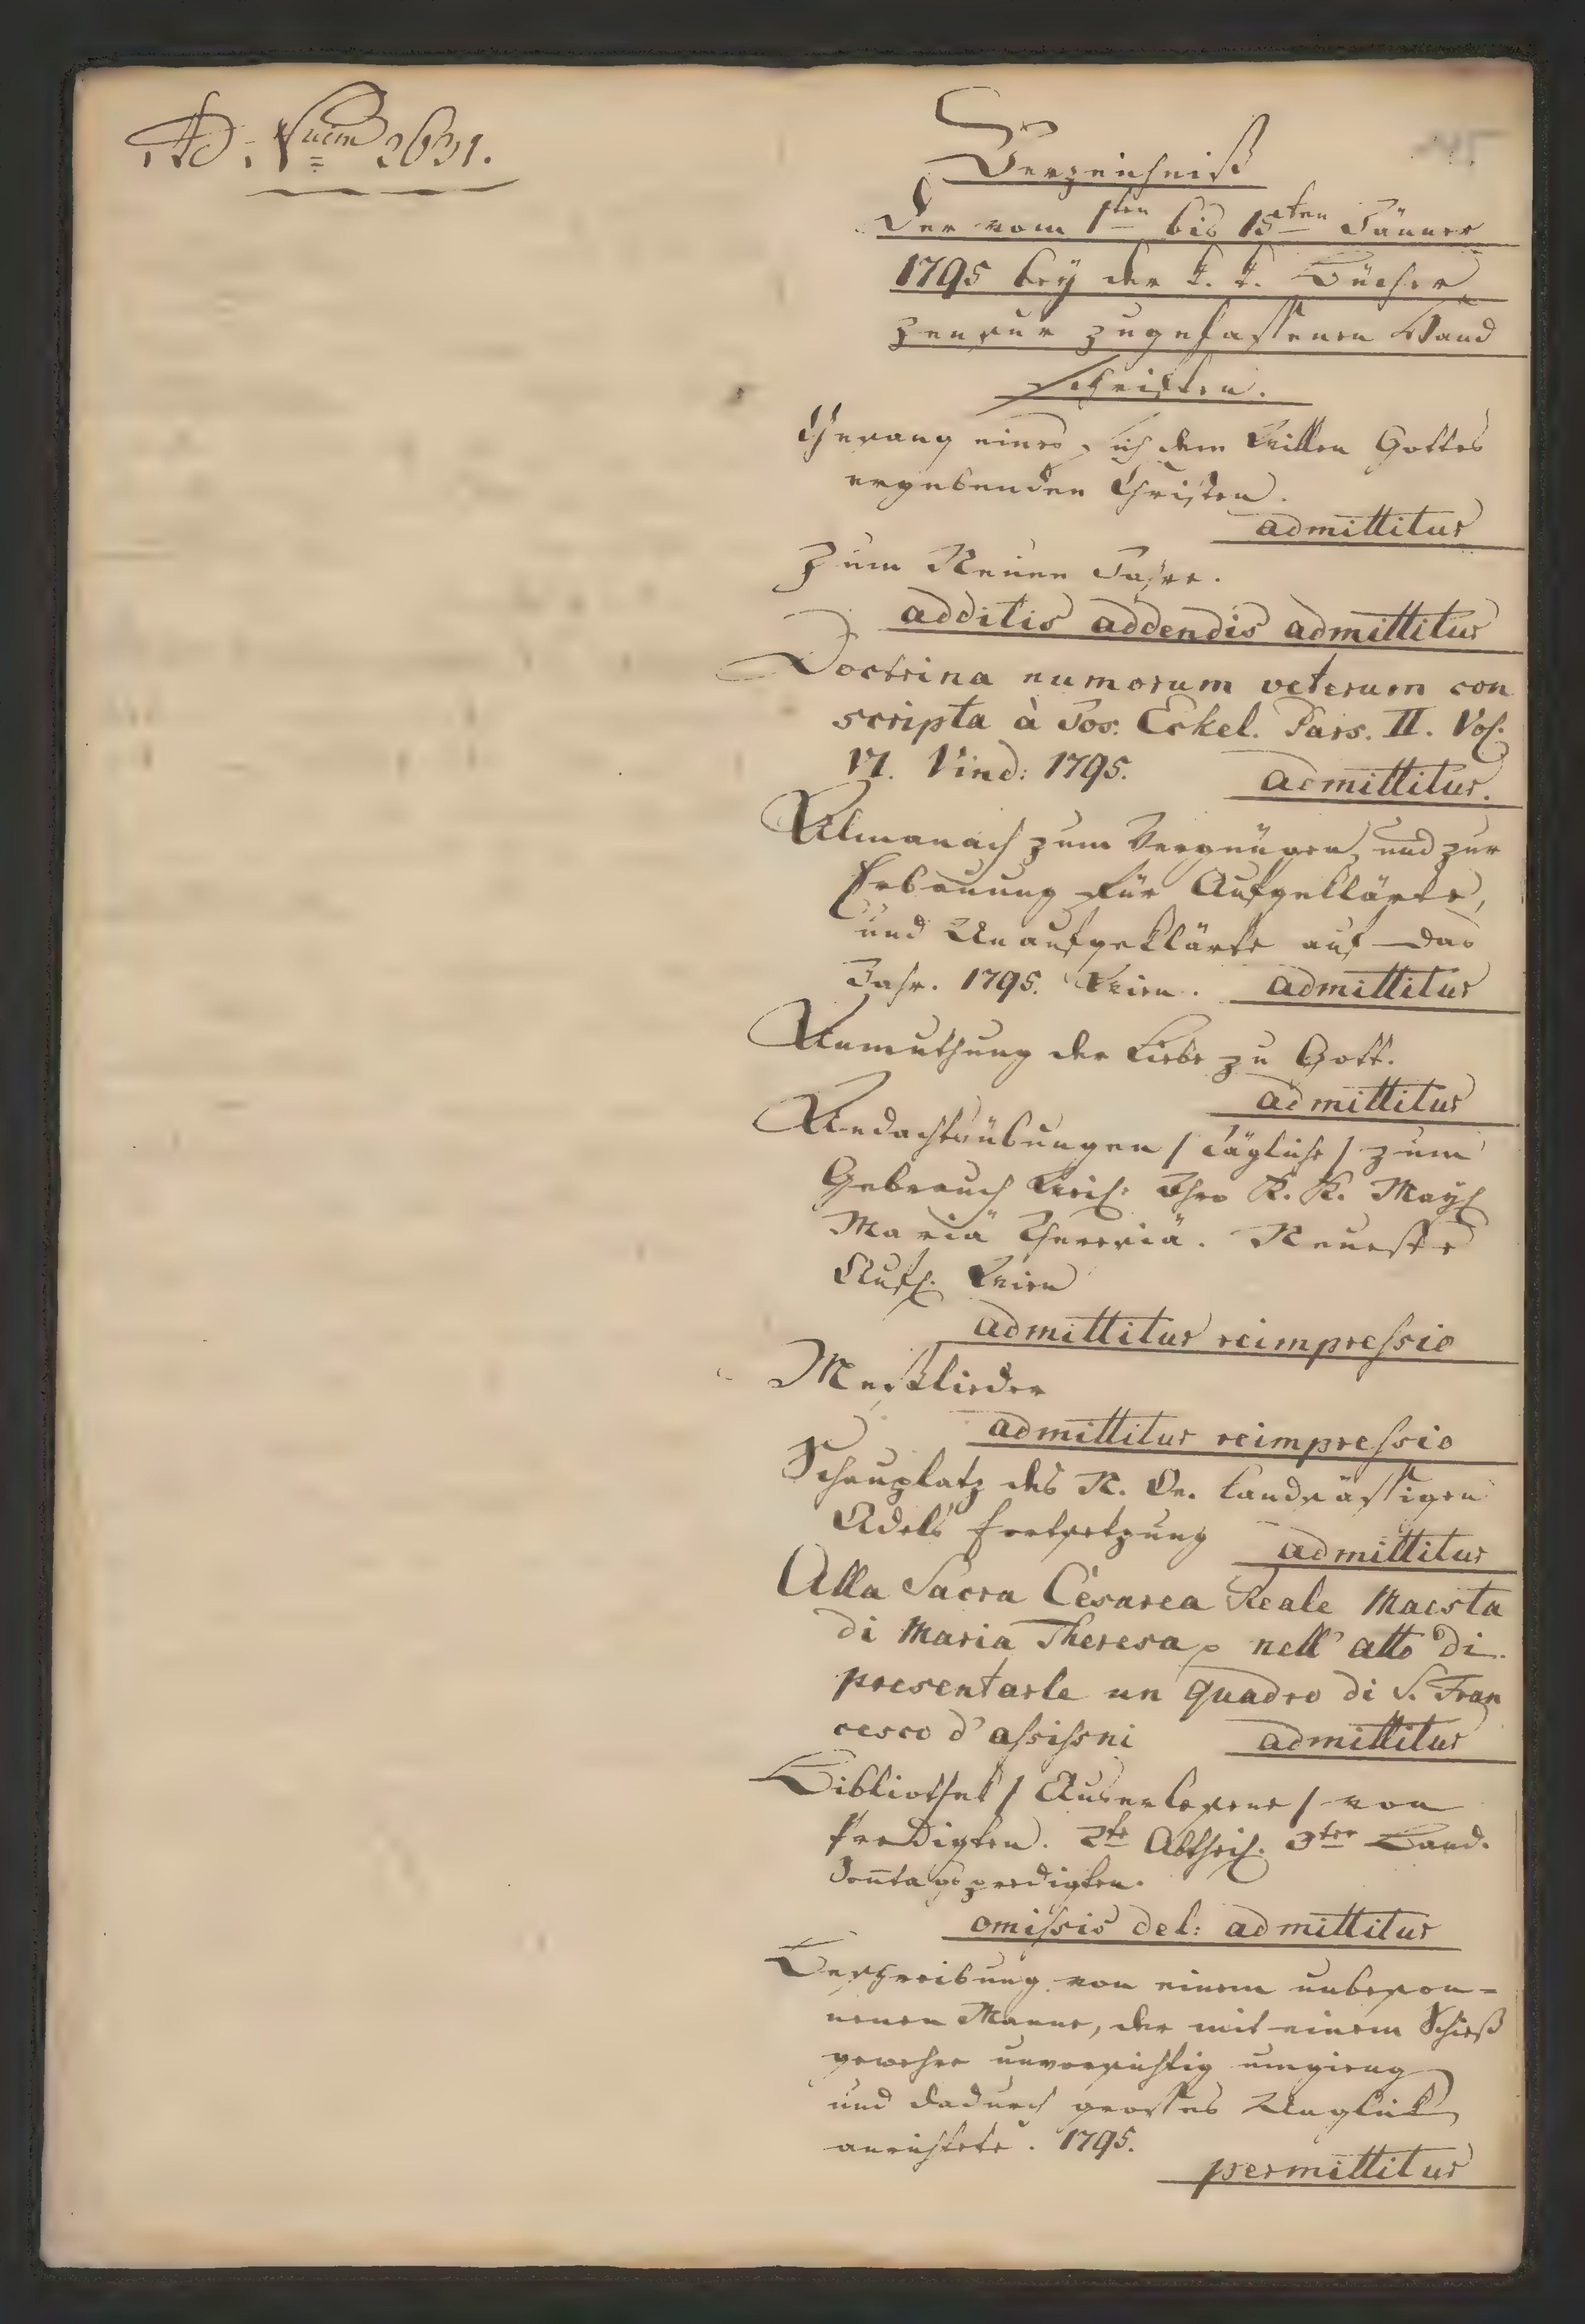 Ad Num 2631.
Verzeichniß
der vom 1ten bis 15ten Jänner
1795 bey der k. k. Bücher
zensur zugelassenen Hand
schriften.
Gesang eines sich dem Willen Gottes
ergebenden Christen.
admittitur
Zum Neuen Jahre.
additis addendis admittitur
Doctrina numorum veterum con
scripta à Jos. Eckel. Pars. II. Vol.
VI. Vind: 1795. admittitur.
Almanach zum Vergnügen, und zur
Erbauung für Aufgeklärte,
und Unaufgeklärte auf das
Jahr. 1795. Wien. admittitur
Anmuthung der Liebe zu Gott.
admittitur
Andachtsübungen / tägliche / zum
Gebrauch Weil: Ihro K. K. May:
Mariä Theresiä. Neueste
Aufl. Wien
admittitur reimpressio
Meßlieder
admittitur reimpressio
Schauplatz des N. Oe. landsässigen
Adels Fortsetzung admittitur
Alla Sacra Cesarea Reale Maesta
di Maria Theresa nell' atto di
presentarle un quadro di S. Fran
cesco d' assissni admittitur
Bibliothek / Auserlesene / von
Predigten. 2te Abtheil. 3ter Band.
Sonntagspredigten.
omissis del: admittitur
Beschreibung von einem unbeson-
nenen Manne, der mit einem Schieß
gewehre unvorsichtig umgieng
und dadurch grosses Unglück
anrichtete. 1795.
permittitur